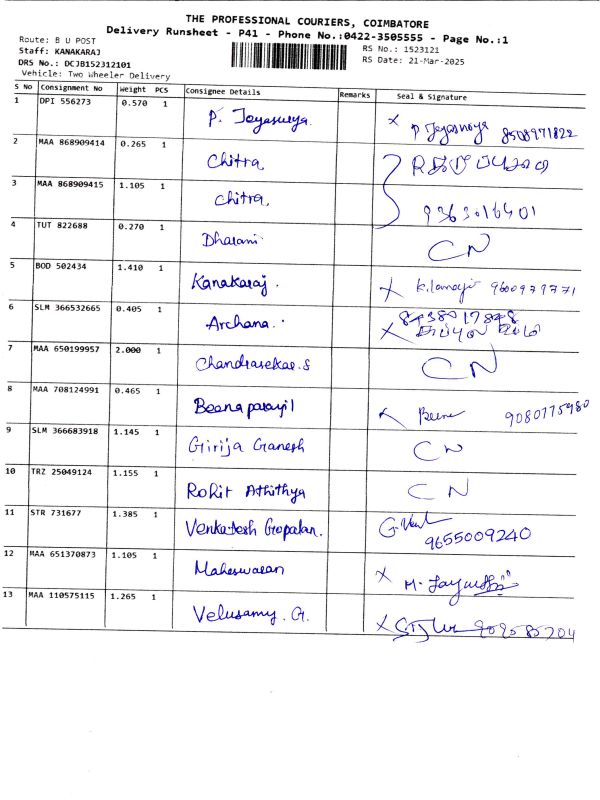 THE PROFESSIONAL COURIERS, COIMBATORE
Delivery Runsheet - P41 - Phone No.:0422-3505555 - Page No.:1
Route: B U POST
RS No.: 1523121
Staff: KANAKARAJ
RS Date: 21-Mar-2025
DRS No.: DCJB152312101
Vehicle: Two Wheeler Delivery
S No Consignment No Weight PCS Consignee Details Remarks Seal & Signature
1 DPI 556273 0.570 1 P. Jayasurya. X P Jayasurya 8508971822
2 MAA 868909414 0.265 1 Chitra,
3 MAA 868909415 1.105 1 Chitra, 9363016401
4 TUT 822688 0.270 1 Dharani CN
5 BOD 502434 1.410 1 Kanakaraj. X 9600979771
6 SLM 366532665 0.405 1 Archana. X 8438017848
7 MAA 650199957 2.000 1 Chandrasekar.S CN
8 MAA 708124991 0.465 1 Beenaparayil 9080775980
9 SLM 366683918 1.145 1 Girija Ganesh CN
10 TRZ 25049124 1.155 1 Rohit Athithya CN
11 STR 731677 1.385 1 Venkatesh Gopalan. 9655009240
12 MAA 651370873 1.105 1 Maheswaran X
13 MAA 110575115 1.265 1 Velusamy. G. X